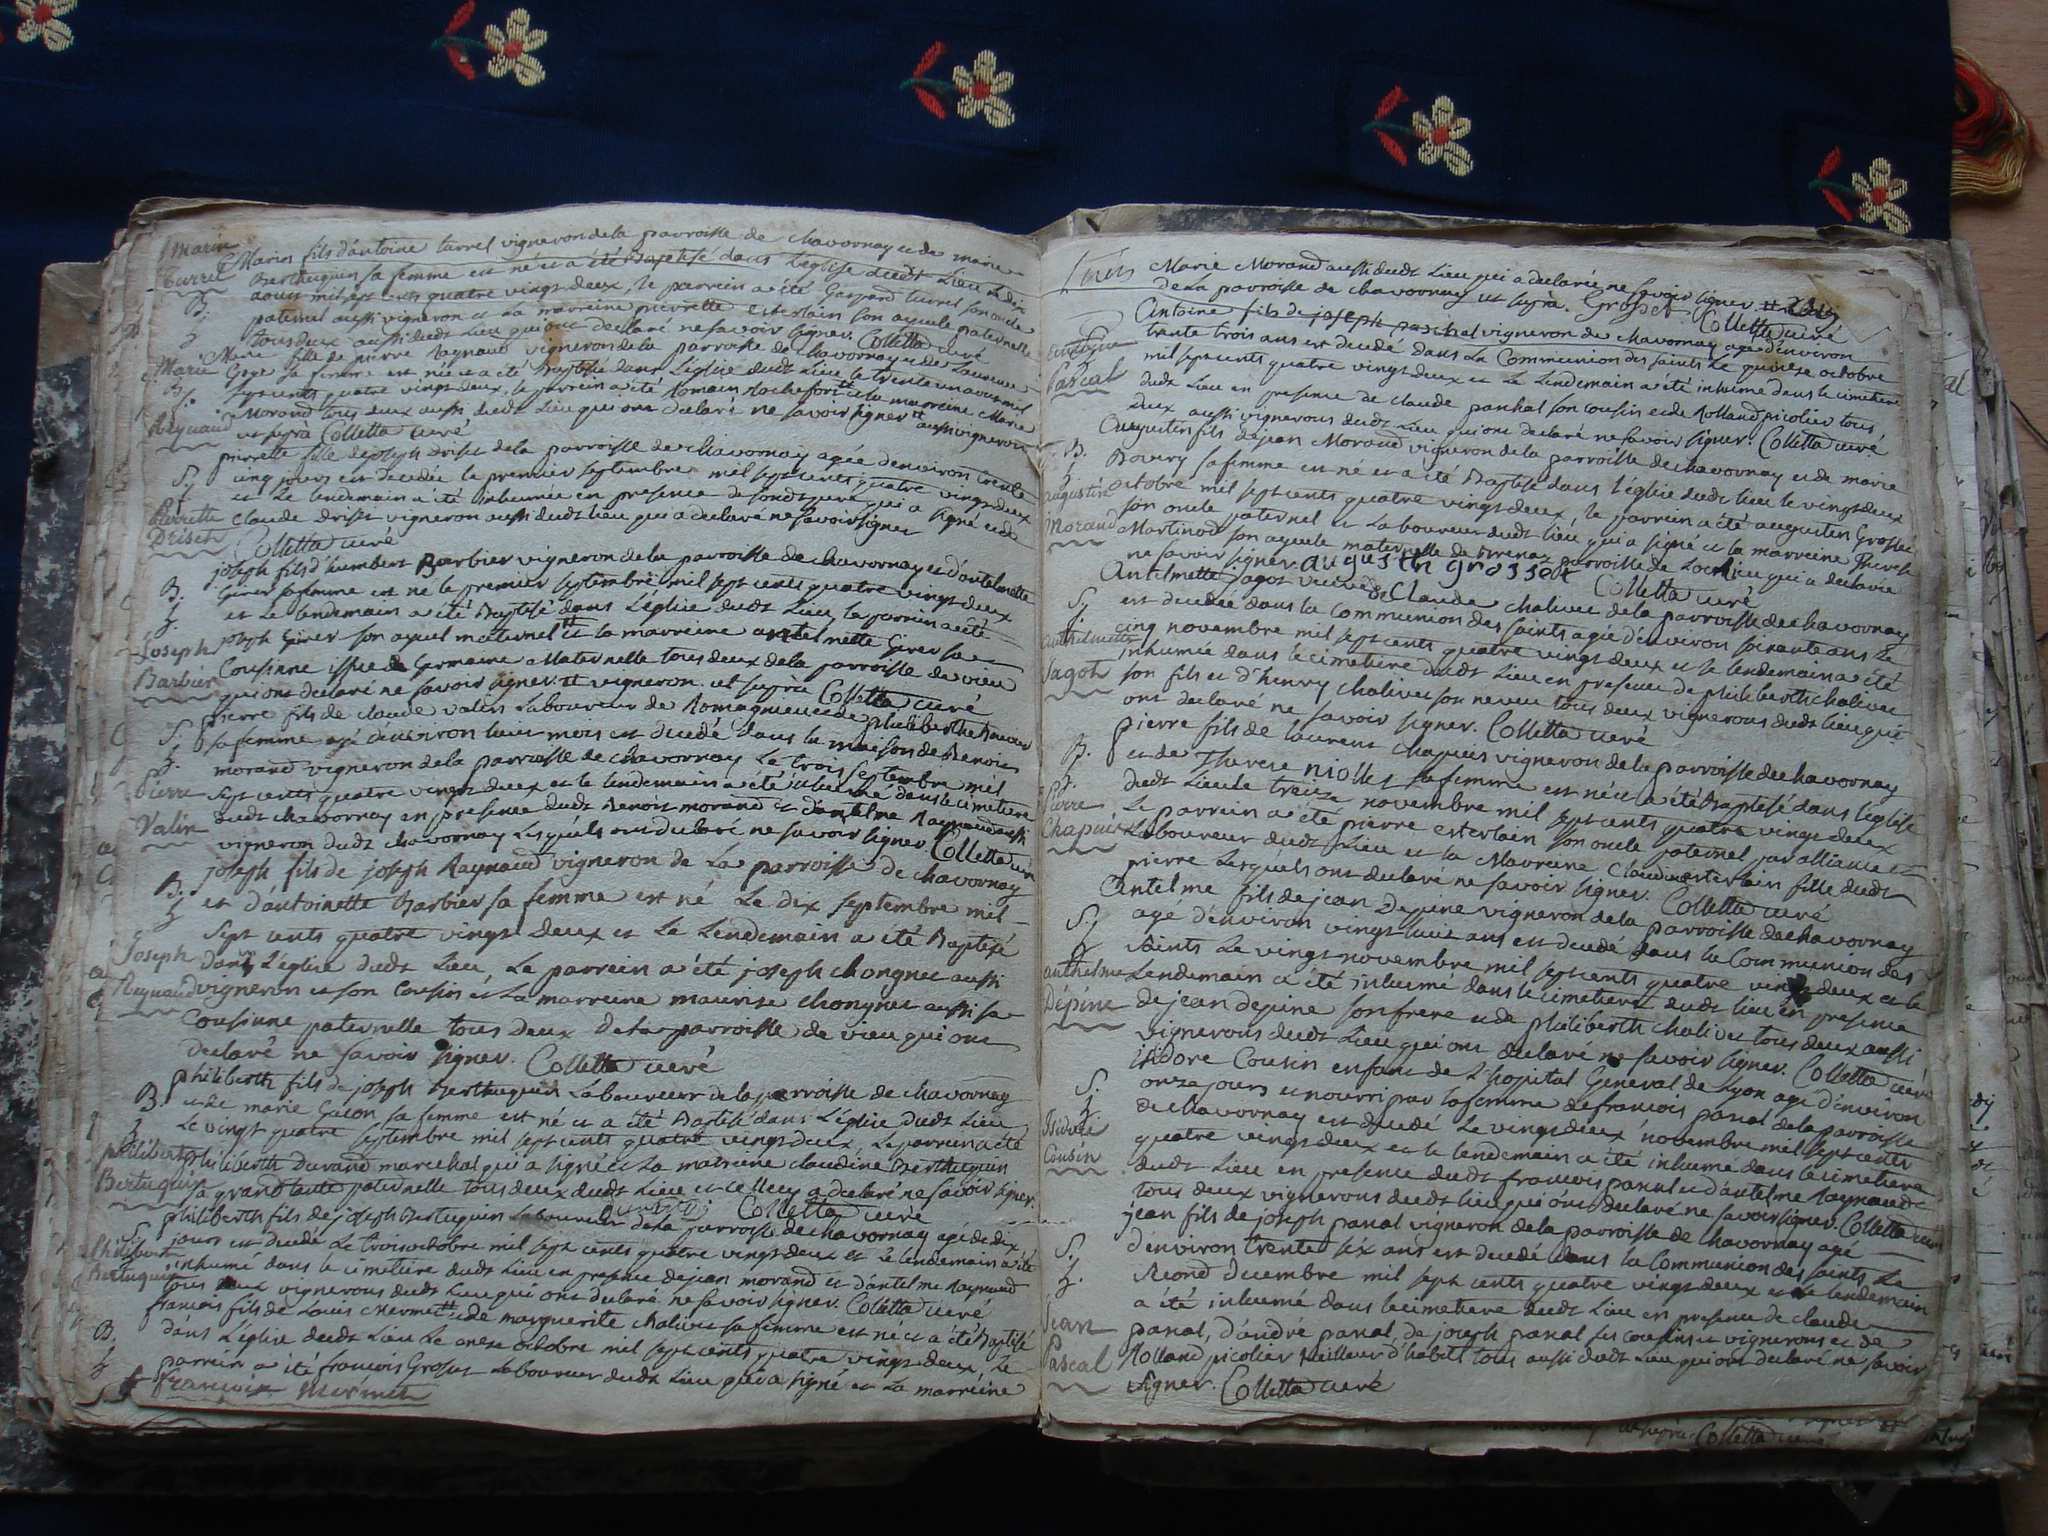 Marin
Turrel
Marin fils d'antoine turrel vigneron de la parroisse de chavornay et de marie
Berthuguin sa femme est né et a été Baptisé dans L'église dudt Lieu Le dix
aoust mil sept cents quatre vingt deux, le parrein a été Gaspard turrel son oncle
B.
paternel aussi vigneron et La marreine pierrette esterlain son ayeule paternelle
tous deux aussi dudt Lieu qui ont declaré ne savoir signer. Colletta curé
Marie
Marie fille de pierre Raynaud vigneron de la parroisse de chavornay et de Laurence
sa femme est née et a été Baptisée dans L'église dudt Lieu le trente un aoust mil
B.
sept cents quatre vingt deux, le parrein a été Romain Rochefort tt et la marreine Marie
Reynaud
Morand tous deux aussi dudt Lieu qui ont declaré ne savoir signer tt aussi vigneron
Colletta curé
pierrette fille de joseph Drisct de la parroisse de chavornay agée d'environ trente
S.
cinq jours est decedée le premier septembre mil sept cents quatre vingt deux
et Le lendemain a été inhumée en presence de sondt pere qui a signé et de
Pierrette
Drisch
Claude Drisct vigneron aussi dudt Lieu qui a declaré ne savoir signer
Colletta curé
joseph fils d'humbert Barbier vigneron de la parroisse de chavornay et d'antelmette
B.
Girer sa femme est né le premier septembre mil sept cents quatre vingt deux
et Le lendemain a été Baptisé dans L'église dudt Lieu, le parrein a été
Joseph
joseph Girer son ayeul maternel tt et la marreine antelmette Girer sa
Barbier
Cousinne issue de Germaine Maternelle tous deux de la parroisse de vieu
qui ont declaré ne savoir signer. tt vigneron. Colletta curé
pierre fils de claude valin Laboureur de Romagnieu et de philiberthe
S.
sa femme agé d'environ huit mois est decedé dans la maison de Benoit
morand vigneron de la parroisse de chavornay Le trois septembre mil
Pierre
sept cents quatre vingt deux et le lendemain a été inhumé dans le cimetiere
Valin
dudt chavornay en presence dudt Benoit morand et d'antelme Raynaud aussi
vigneron dudt chavornay Lesquels ont declaré ne savoir signer. Colletta curé
joseph fils de joseph Raynaud vigneron de La parroisse de chavornay
B.
et d'antoinette Barbier sa femme est né Le dix septembre mil
sept cents quatre vingt deux et Le Lendemain a été Baptisé
Joseph
dans L'église dudt Lieu, Le parrein a été joseph chongnet aussi
Reynaud
vigneron et son cousin et La marreine maurise chongnet aussi sa
Cousinne paternelle tous deux de la parroisse de vieu qui ont
declaré ne savoir signer. Colletta curé
philiberth fils de joseph Berthuguin Laboureur de la parroisse de chavornay
B.
et de marie Guion sa femme est né et a été Baptisé dans L'église dudt Lieu
Le vingt quatre septembre mil sept cents quatre vingt deux, Le parrein a été
Philibert
philiberth Durand marechal qui a signé et La marreine claudine Berthuguin
Bertuguin
sa grand tante paternelle tous deux dudt Lieu et celle cy a declaré ne savoir signer.
Colletta curé
philiberth fils de joseph Berthuguin Laboureur de la parroisse de chavornay agé de dix
S.
jours est decedé Le trois octobre mil sept cents quatre vingt deux et Le lendemain a été
Philibert
inhumé dans le cimetiere dudt Lieu en presence de jean morand et d'antelme Raynaud
Bertuguin
tous deux vignerons dudt Lieu qui ont declaré ne savoir signer. Colletta curé
françois fils de Louis Mermet et de marguerite chalives sa femme est né et a été Baptisé
B.
dans L'église dudt Lieu Le onze octobre mil sept cents quatre vingt deux, Le
parrein a été françois Grosset Laboureur dudt Lieu qui a signé et La marreine
françois Mermet
Marie Morand aussi dudt Lieu qui a declaré ne savoir signer tt
de la parroisse de chavornay Grosset. Colletta curé
Antoine fils de joseph paschal vigneron de chavornay agé d'environ
Antoine
trente trois ans est decedé dans La Communion des saints Le quinze octobre
Pascal
mil sept cents quatre vingt deux et Le Lendemain a été inhumé dans le cimetiere
dudt Lieu en presence de claude paschal son cousin et de Rolland picolier tous
deux aussi vignerons dudt Lieu qui ont declaré ne savoir signer. Colletta curé
Augustin fils de jean Morand vigneron de la parroisse de chavornay et de marie
B.
Bovery sa femme est né et a été Baptisé dans l'église dudt Lieu le vingt deux
augustin
octobre mil sept cents quatre vingt deux, le parrein a été augustin Grosset
Morand
son oncle paternel et Laboureur dudt Lieu, qui a signé et la marreine Therese
Martinod son ayeule maternelle de Brenaz parroisse de Lochieu qui a declaré
ne savoir signer. augustin grosset Colletta curé
Antelmette jagot veuve de Claude chalives de la parroisse de chavornay
S.
est decedée dans la communion des saints agée d'environ soixante ans Le
Anthelmette
cinq novembre mil sept cents quatre vingt deux et le lendemain a été
Jagot
inhumée dans le cimetiere dudt Lieu en presence de philiberth chalives
son fils et d'henry chalives son neveu tous deux vignerons dudt Lieu qui
ont declaré ne savoir signer. Colletta curé
pierre fils de Laurent chapuis vigneron de la parroisse de chavornay
B.
et de Therese niolles sa femme est né et a été Baptisé dans L'église
Pierre
dudt Lieu le treize novembre mil sept cents quatre vingt deux
Chapuis
Le parrein a été pierre esterlain son oncle paternel par alliance et
Laboureur dudt Lieu et la Marreine Claudine esterlain fille dudt
pierre Lesquels ont declaré ne savoir signer. Colletta curé
Antelme fils de jean Depine vigneron de la parroisse de chavornay
S.
agé d'environ vingt huit ans est decedé dans la Communion des
saints Le vingt novembre mil sept cents quatre vingt deux et le
anthelme
Lendemain a été inhumé dans le cimetiere dudt Lieu en presence
Dépine
de jean depine son frere et de philiberth chalives tous deux aussi
vignerons dudt Lieu qui ont declaré ne savoir signer. Colletta curé
isidore Cousin enfant de L'hopital General de Lyon agé d'environ
S.
onze jours et nourri par la femme de françois panal de la parroisse
de chavornay est decedé Le vingt deux novembre mil sept cents
Isidore
quatre vingt deux et le lendemain a été inhumé dans le cimetiere
Cousin
dudt Lieu en presence dudt françois panal et d'antelme Raynaud
tous deux vignerons dudt Lieu qui ont declaré ne savoir signer. Colletta curé
jean fils de joseph panal vigneron de la parroisse de chavornay agé
S.
d'environ trente six ans est decedé dans la Communion des saints Le
second decembre mil sept cents quatre vingt deux et Le lendemain
Jean
a été inhumé dans le cimetiere dudt Lieu en presence de claude
Pascal
panal, d'andré panal, de joseph panal ses cousins et vignerons et de
Rolland picolier tailleur d'habits tous aussi dudt Lieu qui ont declaré ne savoir
signer. Colletta curé
Colletta curé